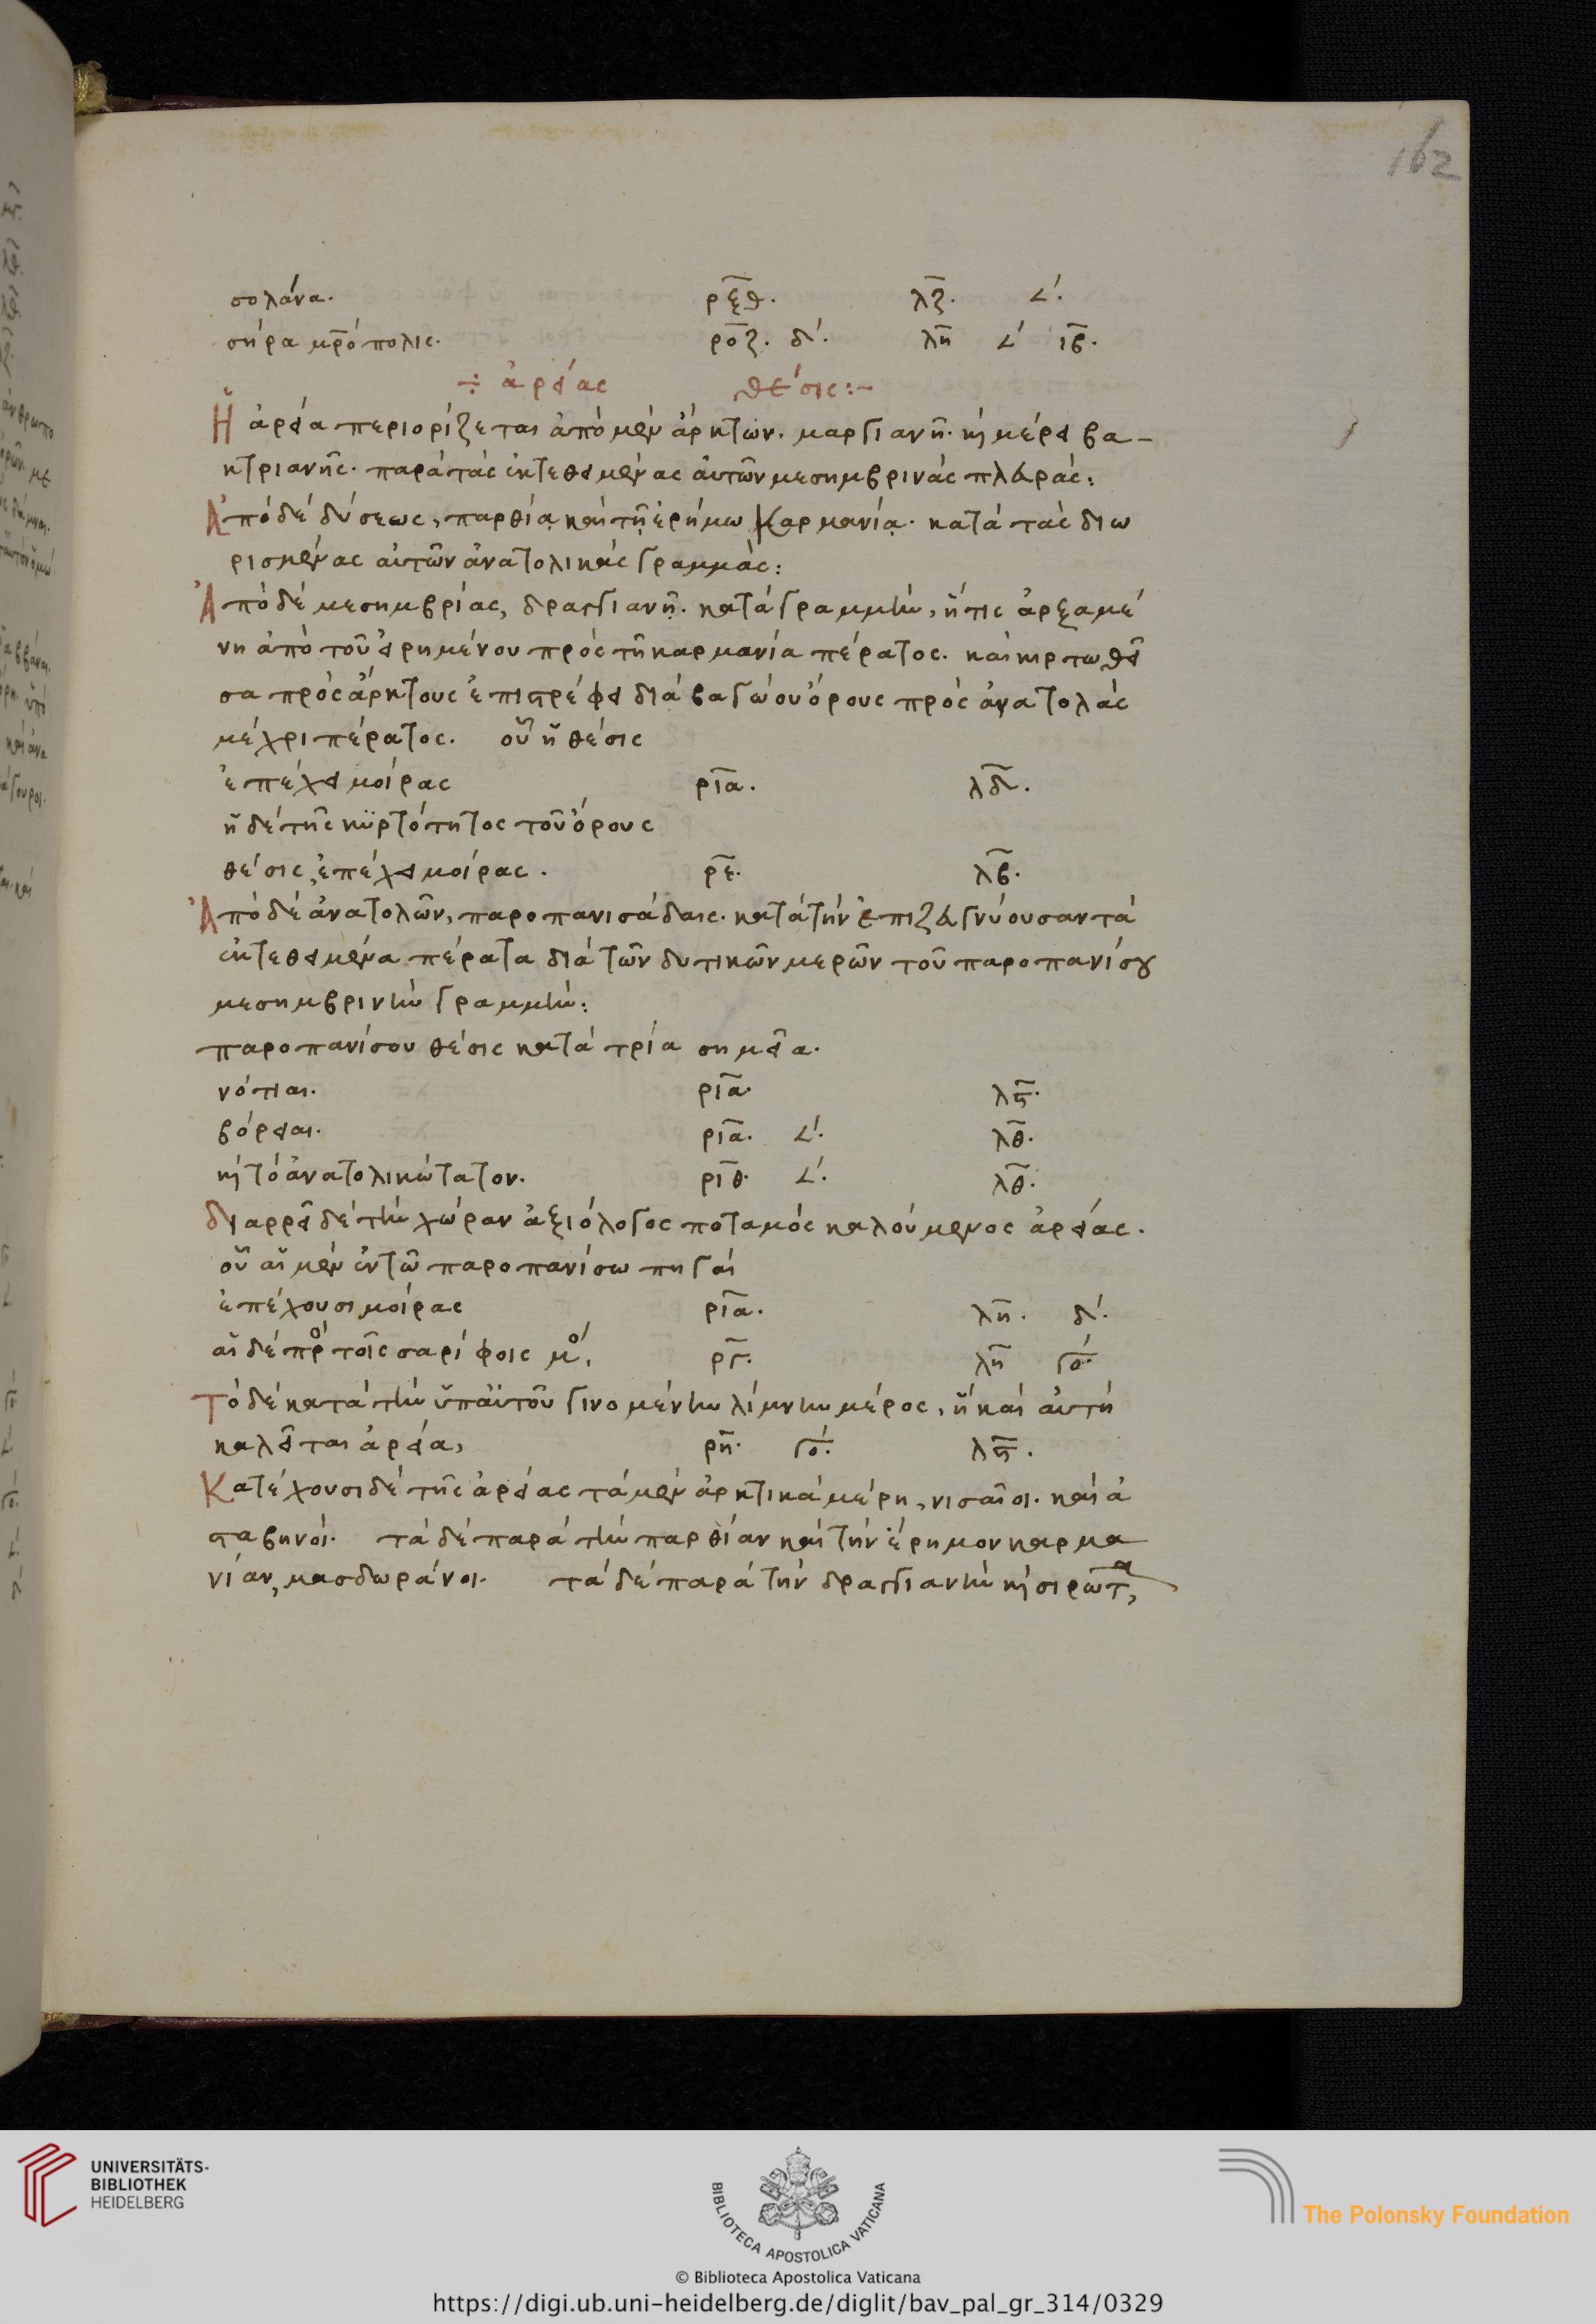 162
σολάνα. ρξθ. λζ. 𐅵´.
σήρα μρ̅όπολις. ροζ. δ´. λη 𐅵´ ιβ.
÷ ἀρείας θέσις:~
Ἡ ἀρεία περιορίζεται ἀπὸ μὲν ἄρκτων. μαργιανῆ. κ̀ μέρει βα-
κτριανῆς. παρὰ τὰς ἐκτεθειμένας αὐτῶν μεσημβρινὰς πλευράς:
Ἀπὸ δὲ δύσεως, παρθίᾳ καὶ τῇ ἐρήμω καρμανίᾳ. κατὰ τὰς διω
ρισμένας αὐτῶν ἀνατολικὰς γραμμάς:
Ἀπὸ δὲ μεσημβρίας, δραγγιανῇ. κατὰ γραμμὴν, ἥτις ἀρξαμέ
νη ἀπὸ τοῦ εἰρημένου πρὸς τῆ καρμανία πέρατος. καὶ κιρτωθεῖ
σα πρὸς ἄρκτους ἐπιστρέφει διὰ βαγώου ὄρους πρὸς ἀνατολὰς
μέχρι πέρατος. οὗ ἡ θέσις
ἐπέχει μοίρας ρια. λδ.
ἡ δὲ τῆς κϋρτότητος τοῦ ὄρους
θέσις, ἐπέχει μοίρας. ρε. λβ.
Ἀπὸ δὲ ἀνατολῶν, παροπανισάδαις. κατὰ τὴν ἐπιζευγνύουσαν τὰ
ἐκτεθειμένα πέρατα διὰ τῶν δυτικῶν μερῶν τοῦ παροπανίσου
μεσημβρινὴν γραμμήν:
παροπανίσου θέσις κατὰ τρία σημεῖα.
νότιαι. ρια. λς.
βόρειαι. ρια. 𐅵´. λθ.
κ̀ τὸ ἀνατολικώτατον. ριθ. 𐅵´. λθ.
διαρρεῖ δὲ τὴν χώραν ἀξιόλογος ποταμὸς καλούμενος ἀρείας.
οὗ αἱ μὲν ἐν τῶ παροπανίσω πηγαὶ
ἐπέχουσι μοίρας ρια. λη. δ´.
αἱ δὲ πρ̊ τοῖς σαρίφοις μ̊, ργ. λη γο´.
Τὸ δὲ κατὰ τὴν ὑπ' αὐτοῦ γινομένην λίμνην μέρος, ἣ καὶ αὐτὴ
καλεῖται ἀρεία, ρη. γο´. λς.
Κατέχουσι δὲ τῆς ἀρείας τὰ μὲν ἀρκτικὰ μέρη, νισαῖοι. καὶ ἀ
σταβηνοί. τὰ δὲ παρὰ τὴν παρθίαν καὶ τὴν ἔρημον καρμα
νίαν, μασδωράνοι. τὰ δὲ παρὰ τὴν δραγγιανὴν κ̀ σιρώτᵅ,
UNIVERSITÄTS-
BIBLIOTHEK
HEIDELBERG
BIBLIOTECA APOSTOLICA VATICANA
The Polonsky Foundation
© Biblioteca Apostolica Vaticana
https://digi.ub.uni-heidelberg.de/diglit/bav_pal_gr_314/0329